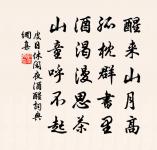 醒来山月高
孤枕群書里
酒渴漫思茶
山童呼不起
皮日休閑夜酒醒詞典
網集